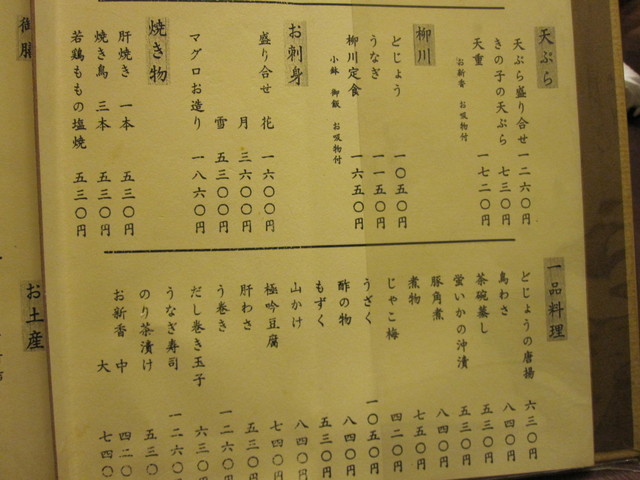 天ぷら
天ぷら盛り合せ 一二六〇円
きの子の天ぷら 七三〇円
天重 一七二〇円
お新香 お吸物付
柳川
どじょう 一〇五〇円
うなぎ 一一五〇円
柳川定食 一六五〇円
小鉢 御飯 お吸物付
お刺身
盛り合せ 花 一六〇〇円
月 三六〇〇円
雪 五三〇〇円
マグロお造り 一八六〇円
焼き物
肝焼き 一本 五三〇円
焼き鳥 三本 五三〇円
若鶏ももの塩焼 五三〇円
一品料理
どじょうの唐揚 六三〇円
鳥わさ 八四〇円
茶碗蒸し 五三〇円
蛍いかの沖漬 五三〇円
豚角煮 八四〇円
煮物 七五〇円
じゃこ梅 四二〇円
うざく 一〇五〇円
酢の物 八四〇円
もずく 五三〇円
山かけ 八四〇円
極吟豆腐 七四〇円
肝わさ 五三〇円
う巻き 一二六〇円
だし巻き玉子 六三〇円
うなぎ寿司 一二六〇
のり茶漬け 五三〇
お新香 中 四二〇
大 七四〇
お土産